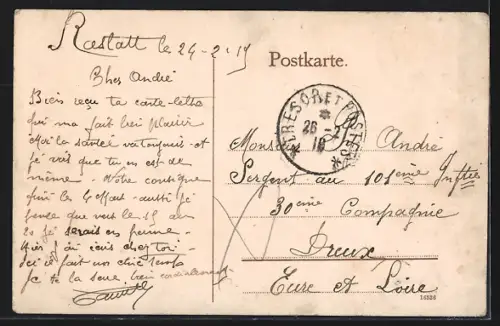 Rastatt le 24-2-19
Cher André
Bien reçu ta carte-lettre
qui m'a fait bien plaisir
Moi la santé va toujours et
je vois que tu en est de
même - Notre consigne
fini le 4 Mars - aussi je
pense que vers le 15 ou
20 je serais en perme -
chez toi -
Ici il fait un chic temps
Je te la serre bien cordialement
Postkarte.
TRESOR ET POSTES
26 - 2
19
Monsieur André
Sergent au 101ème Inftie
30ème Compagnie
Dreux
Eure et Loire